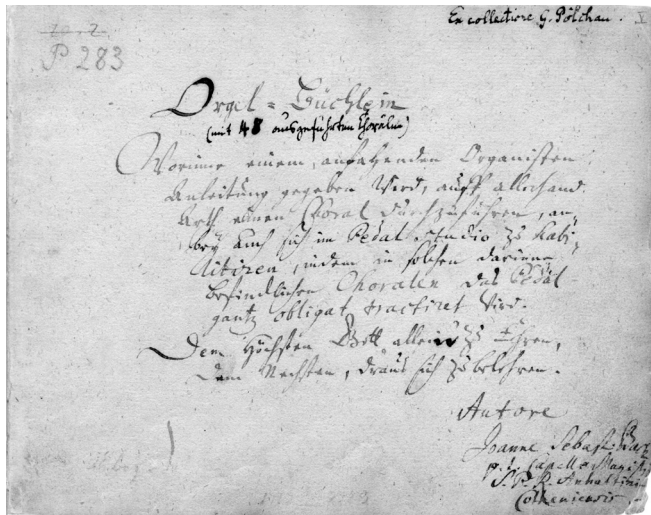 Ex collectione G. Pölchau.
V
P 283
Orgel-Büchlein
(mit 48 ausgeführten Chorälen)
Worinne einem anfahenden Organisten
Anleitung gegeben wird, auff allerhand
Arth einen Choral durchzuführen, an-
bey auch sich im Pedal studio zu habi-
litiren, indem in solchen darinne
befindlichen Choralen das Pedal
gantz obligat tractiret wird.
Dem Höchsten Gott allein zu Ehren,
Dem Nechsten, draus sich zu belehren.
Autore
Joanne Sebast. Bach
p. t. Capellæ Magistri
S. P. R. Anhaltini-
Cotheniensis.